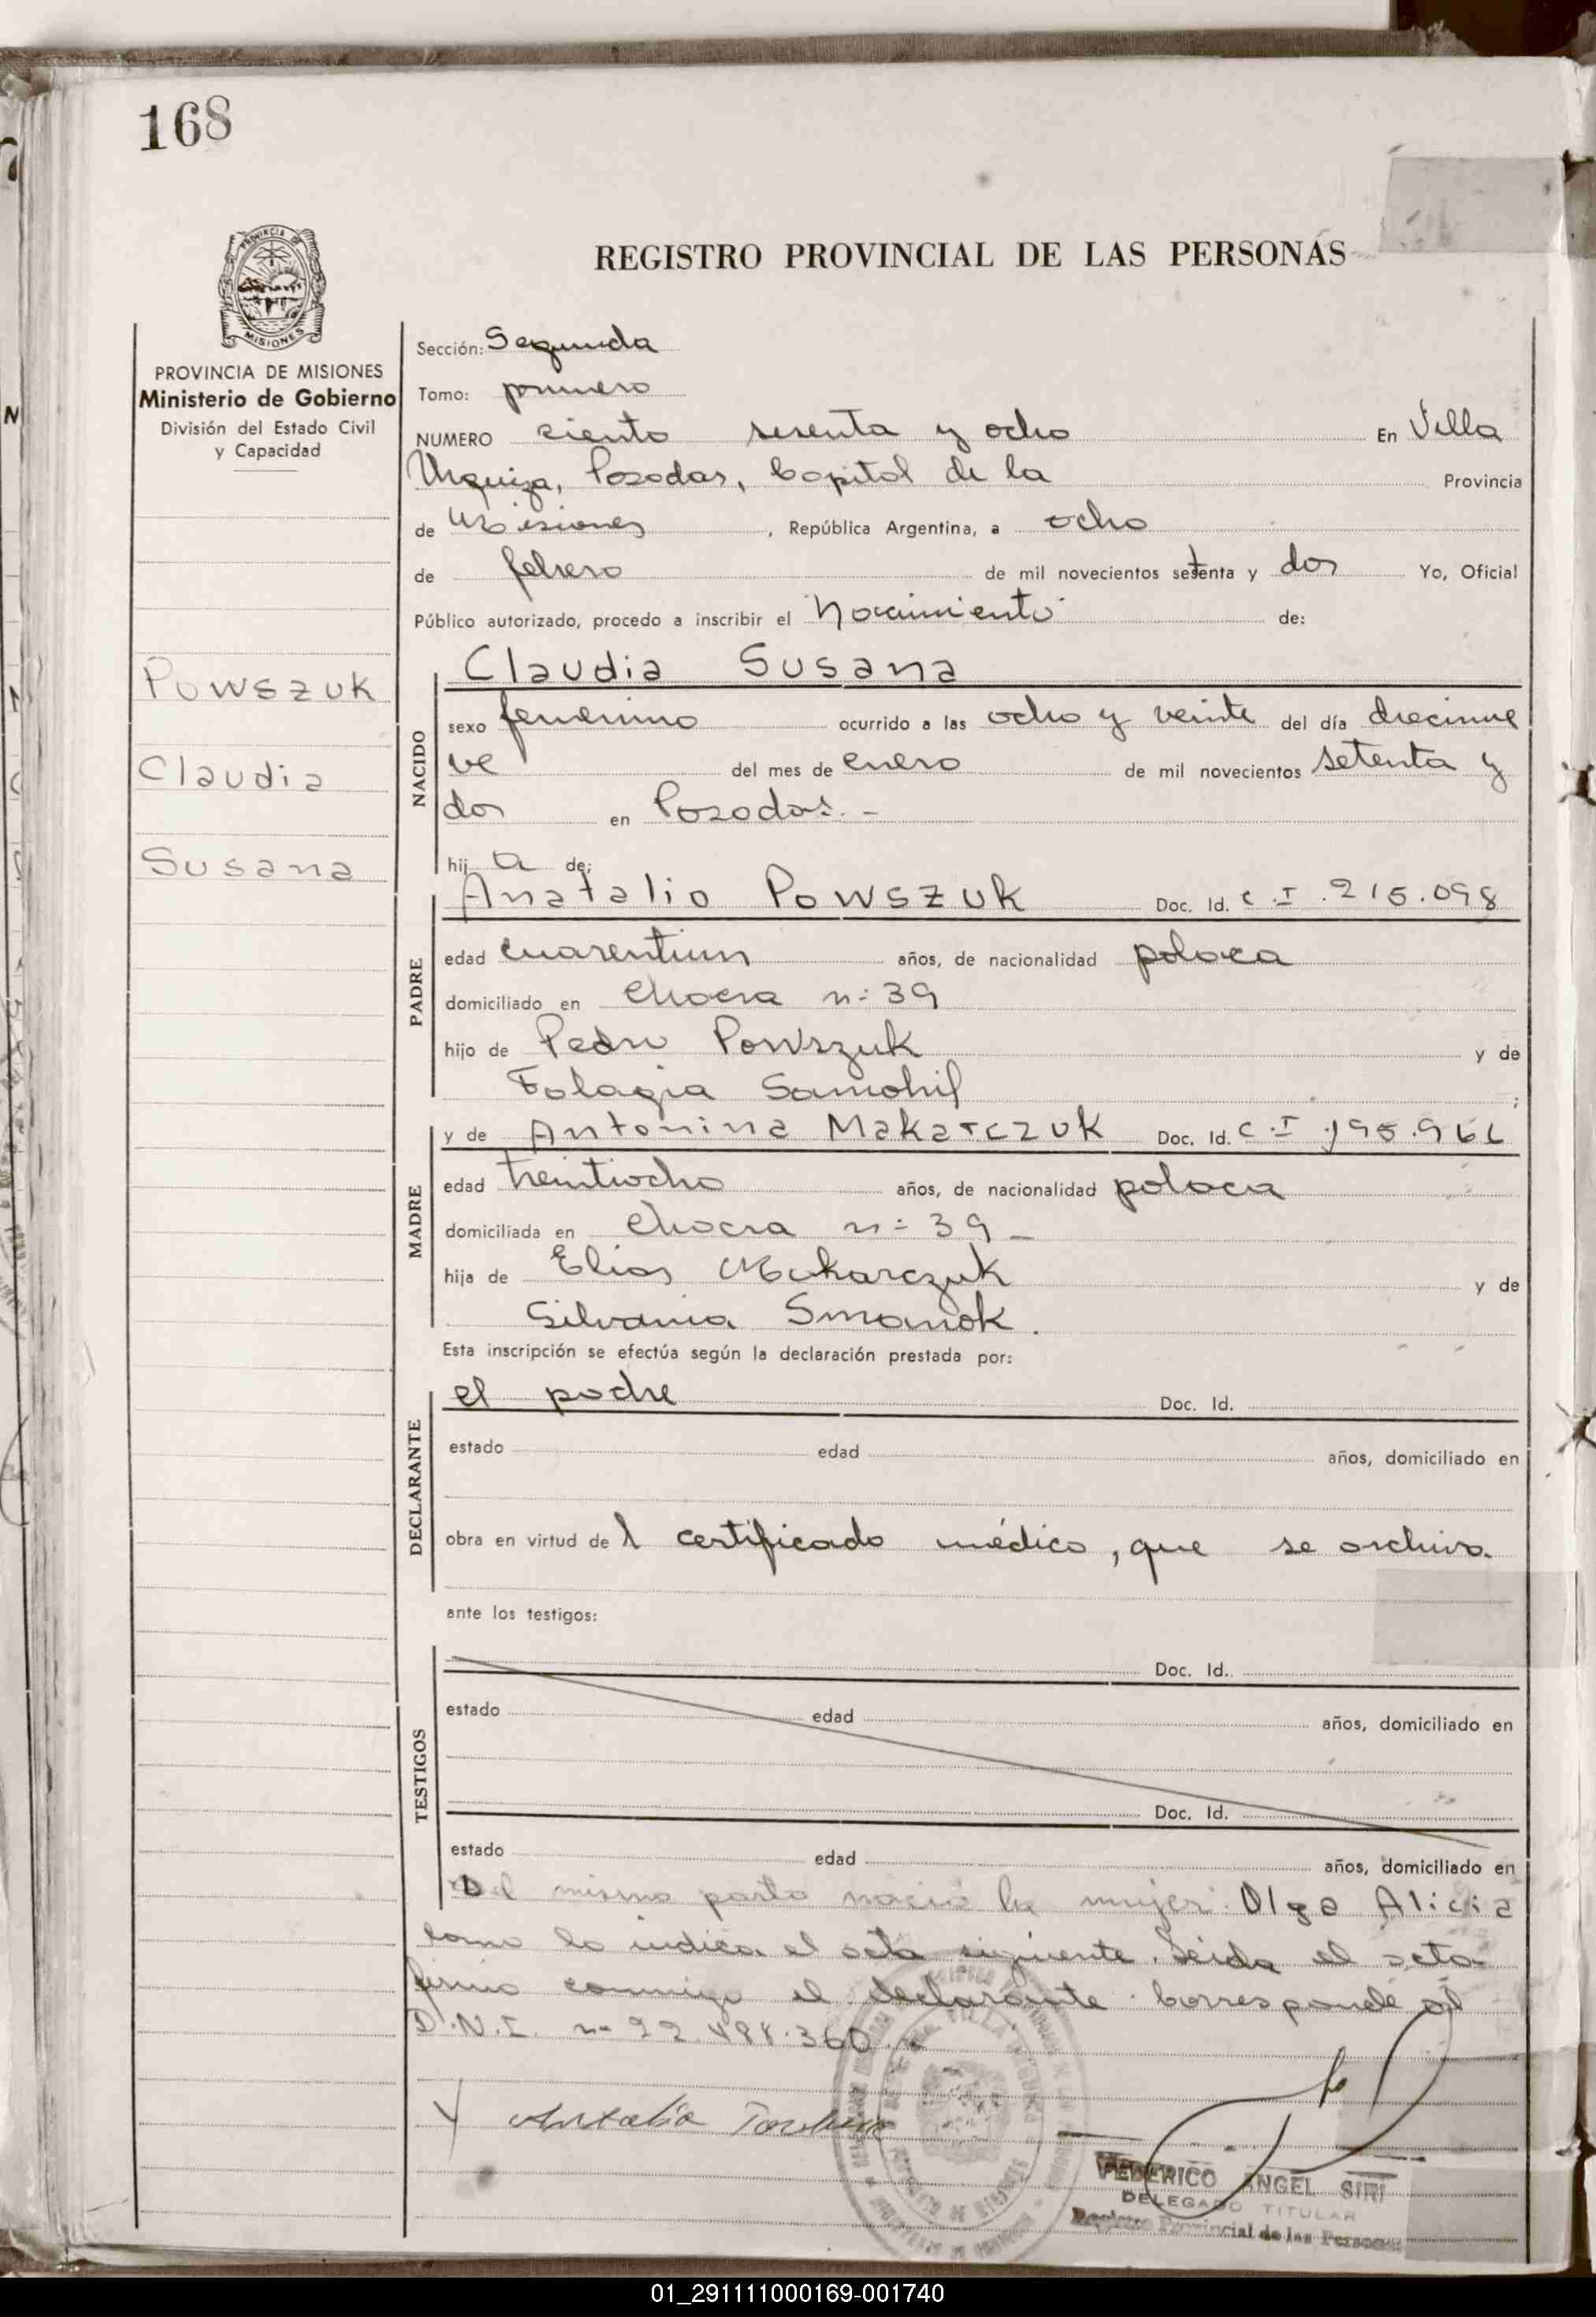 168
REGISTRO PROVINCIAL DE LAS PERSONAS
PROVINCIA DE MISIONES
Ministerio de Gobierno
División del Estado Civil
y Capacidad
Powszuk
Claudia
Susana
Sección: Segunda
Tomo: primero
NUMERO ciento sesenta y ocho En Villa
Urquiza, Posadas, Capital de la Provincia
de Misiones, República Argentina, a ocho
de febrero de mil novecientos setenta y dos Yo, Oficial
Público autorizado, procedo a inscribir el Nacimiento de:
NACIDO
Claudia Susana
sexo femenino ocurrido a las ocho y veinte del día diecinue
ve del mes de enero de mil novecientos setenta y
dos en Posadas.-
hija de:
PADRE
Anatalio Powszuk Doc. Id. C.I. 215.098
edad cuarentiun años, de nacionalidad polaca
domiciliado en Chacra n: 39
hijo de Pedro Powszuk y de
Folagia Samohil;
MADRE
y de Antonina Makarczuk Doc. Id. C.I. 195.966
edad treintiocho años, de nacionalidad polaca
domiciliada en Chacra n: 39 -
hija de Elias Makarczuk y de
Silvania Smanok.
Esta inscripción se efectúa según la declaración prestada por:
DECLARANTE
el padre Doc. Id.
estado edad años, domiciliado en
obra en virtud del certificado médico, que se archiva.
ante los testigos:
TESTIGOS
Doc. Id.
estado edad años, domiciliado en
Doc. Id.
estado edad años, domiciliado en
Del mismo parto nació la mujer: Olga Alicia
como lo indica el acta siguiente. Leida el acta
firma conmigo el declarante. Corresponde al
D.N.I. n- 22.498.360.
Anatalio
FEDERICO ANGEL SIRI
DELEGADO TITULAR
Registro Provincial de las Personas
01_291111000169-001740